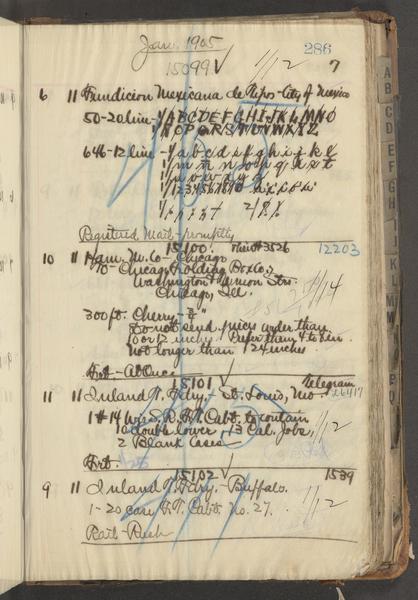 Jan. 1905
286
15099 1/12 7
6 11 Fundicion Mexicana de Tipos - City of Mexico
50-20 line - 1/ABCDEFGHIJKLMNO
1/PQRSTUVWXYZ
646-12 line - 1/a b c d e f g h i j k l
1/m n ñ o p q r s t
1/u v w x y z
1/1234567890
Registered Mail - promptly
15100. Their # 3526 12203
10 11 Ham. M. Co - Chicago
To - Chicago Folding Box Co.,
Washington & Union Strs.
Chicago, Ill. 1/14
300 ft. Cherry - 3/4"
Do not send pieces wider than
10 or 12 inches. Prefer them 4 to 8 in.
Not longer than 124 inches
Frt - At Once
15101 Telegram
11 11 Inland T. Fdry. - St. Louis, Mo. 26417
1 # 14 Wood R. F. Cabt. to contain
10 double lower & 13 Cal. Jobs, 1/12
2 Blank Cases
Frt.
15102 1539
9 11 Inland T. Fdry. - Buffalo. 1/12
1 - 20 case F. T. Cabt. No. 27.
Rail - Rush
A
B
C
D
E
F
G
H
I
J
K
L
M